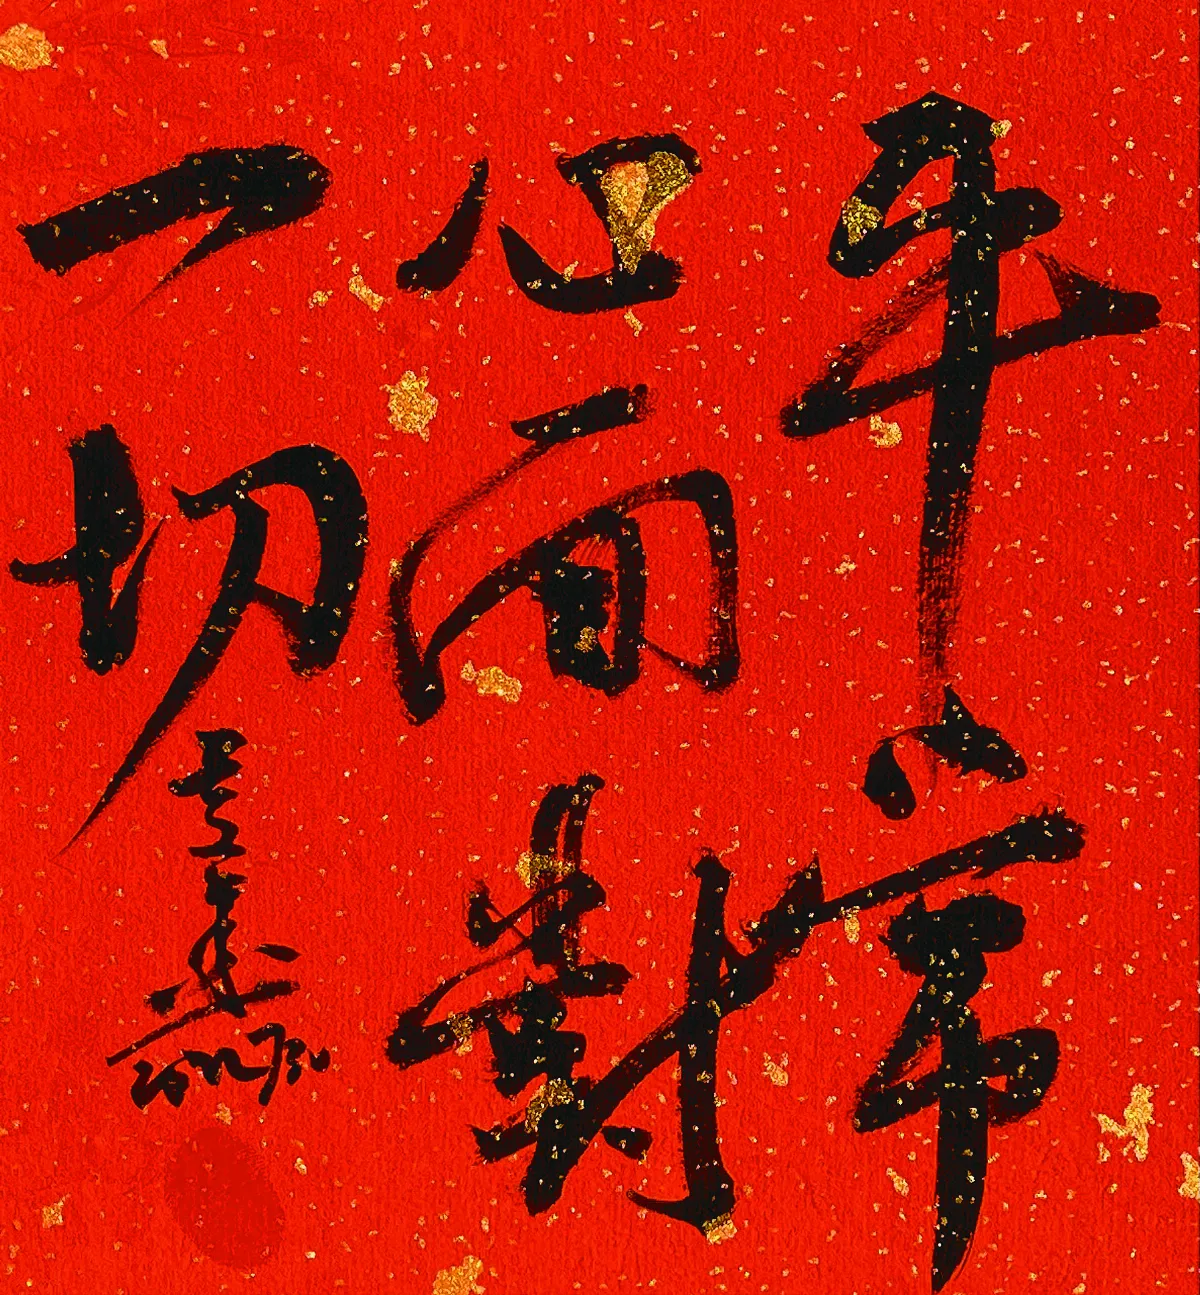 平常
心面對
一切